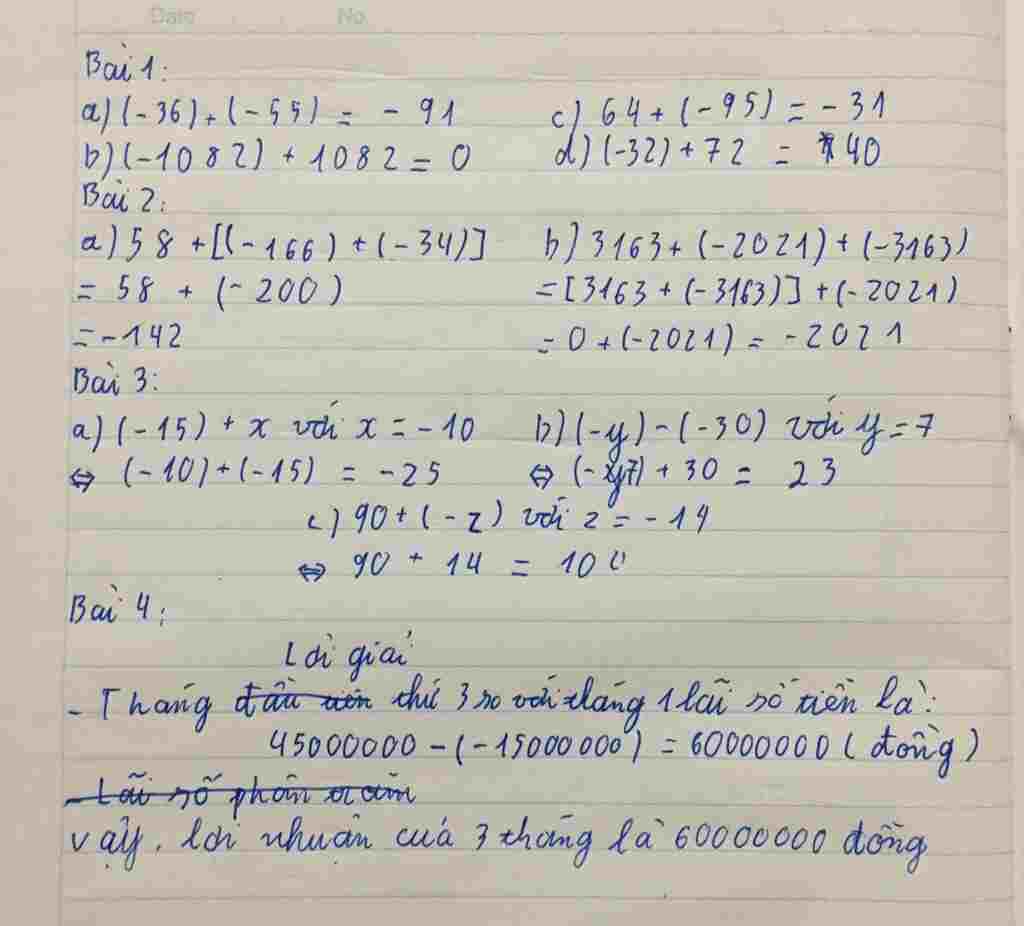 Date No
Bài 1:
a) (-36) + (-55) = - 91 c) 64 + (-95) = - 31
b) (-1082) + 1082 = 0 d) (-32) + 72 = 40
Bài 2:
a) 58 + [(-166) + (-34)] b) 3163 + (-2021) + (-3163)
= 58 + (-200) = [3163 + (-3163)] + (-2021)
= -142 = 0 + (-2021) = -2021
Bài 3:
a) (-15) + x với x = -10 b) (-y) - (-30) với y = 7
⇔ (-10) + (-15) = -25 ⇔ (-7) + 30 = 23
c) 90 + (-z) với z = -14
⇔ 90 + 14 = 104
Bài 4:
Lời giải
- Tháng đầu tiên thứ 3 so với tháng 1 lãi số tiền là:
45000000 - (-15000000) = 60000000 (đồng)
- Lãi số phần trăm
Vậy, lợi nhuận cuả 3 tháng là 60000000 đồng